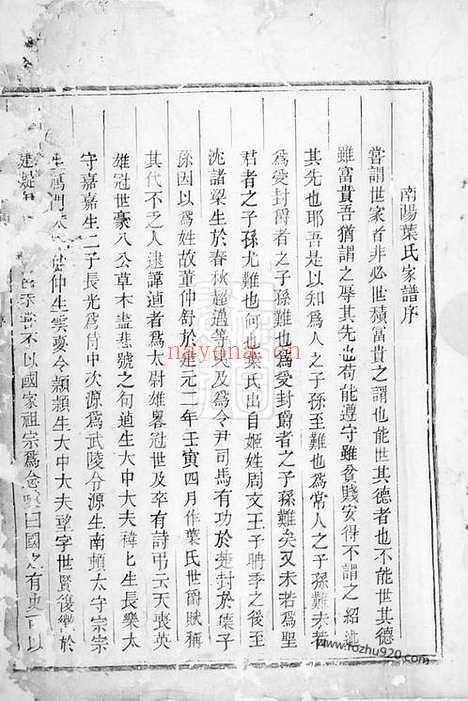 南陽葉氏家譜序
嘗謂世家者非必世積富貴之謂也能世其德者也不能世其德
雖富貴吾猶謂之辱其先也苟能遵守雖貧賤安得不謂之紹述
其先也耶吾是以知為人之子孫至難也為常人之子孫難未若
為受封爵者之子孫難也為受封爵者之子孫難矣又未若為聖
君者之子孫尤難也何也葉氏出自姬姓周文王子聃季之後至
沈諸梁生於春秋超過等夷及為令尹司馬有功於楚封於葉子
孫因以為姓故董仲舒於建元二年壬寅四月作葉氏世爵賦稱
其代不乏人逮諱遉者為太尉雄畧冠世及卒有詩弔云天喪英
雄冠世豪八公草木盡悲號之句遉生大中大夫禕禕生長樂太
守嘉嘉生二子長光為侍中次源為武陵令源生南頓太守宗宗
生 門大 仲仲生雲夢令顥顥生大中大夫望字世賢復 於
建 不以國家祖宗為念 曰國之有史 以
nayona.cn
www.fozhu920.com